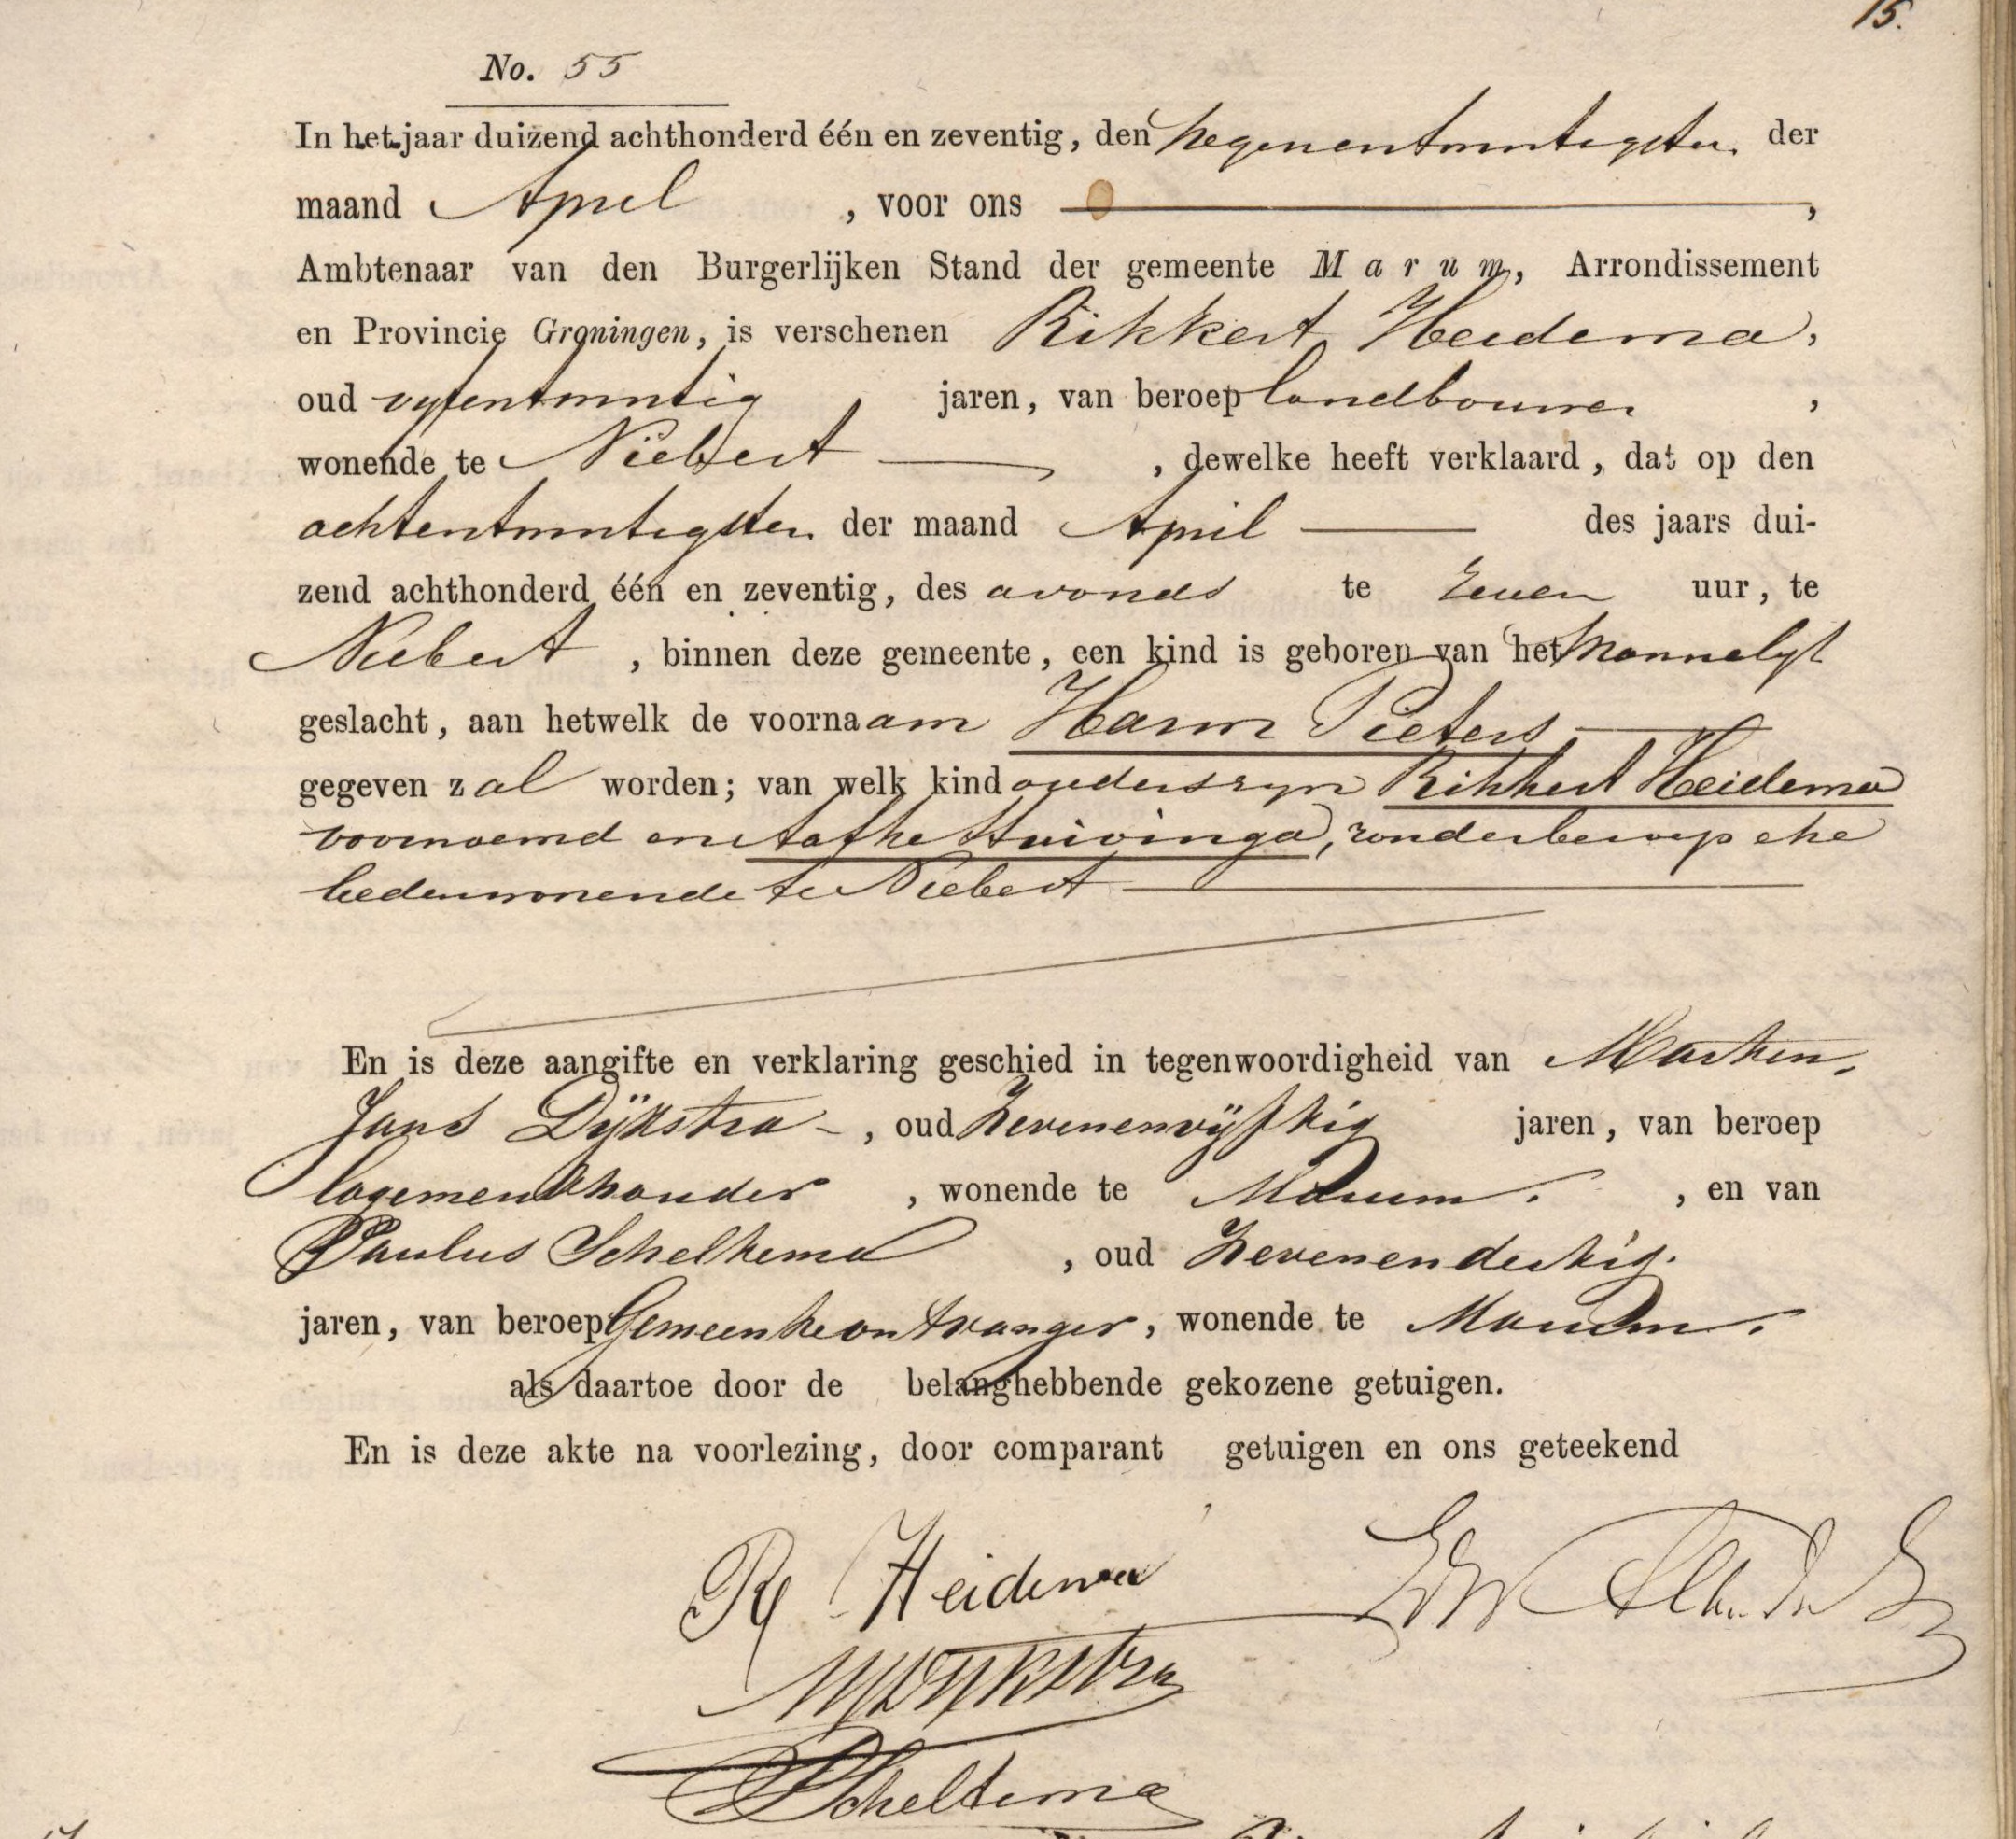 15.
No. 55
In het jaar duizend achthonderd één en zeventig, den negenentwintigsten der
maand April , voor ons ,
Ambtenaar van den Burgerlijken Stand der gemeente Marum, Arrondissement
en Provincie Groningen, is verschenen Rikkert Heidema,
oud vyfentwintig jaren, van beroep landbouwer ,
wonende te Niebert , dewelke heeft verklaard, dat op den
achtentwintigsten der maand April des jaars dui-
zend achthonderd één en zeventig, des avonds te zeven uur, te
Niebert , binnen deze gemeente, een kind is geboren van het mannelyk
geslacht, aan hetwelk de voornaam Harm Pieters
gegeven zal worden; van welk kind ouders zyn Rikkert Heidema
voornoemd en Aafke Huivinga, zonder beroep ehe
lieden wonende te Niebert
En is deze aangifte en verklaring geschied in tegenwoordigheid van Marten,
Jans Dijkstra , oud Zevenenvijftig jaren, van beroep
logementhouder , wonende te Marum. , en van
Paulus Scheltema , oud Zevenendertig.
jaren, van beroep Gemeenteontvanger, wonende te Marum.
als daartoe door de belanghebbende gekozene getuigen.
En is deze akte na voorlezing, door comparant getuigen en ons geteekend
R Heidema
MJDijkstra
PScheltema